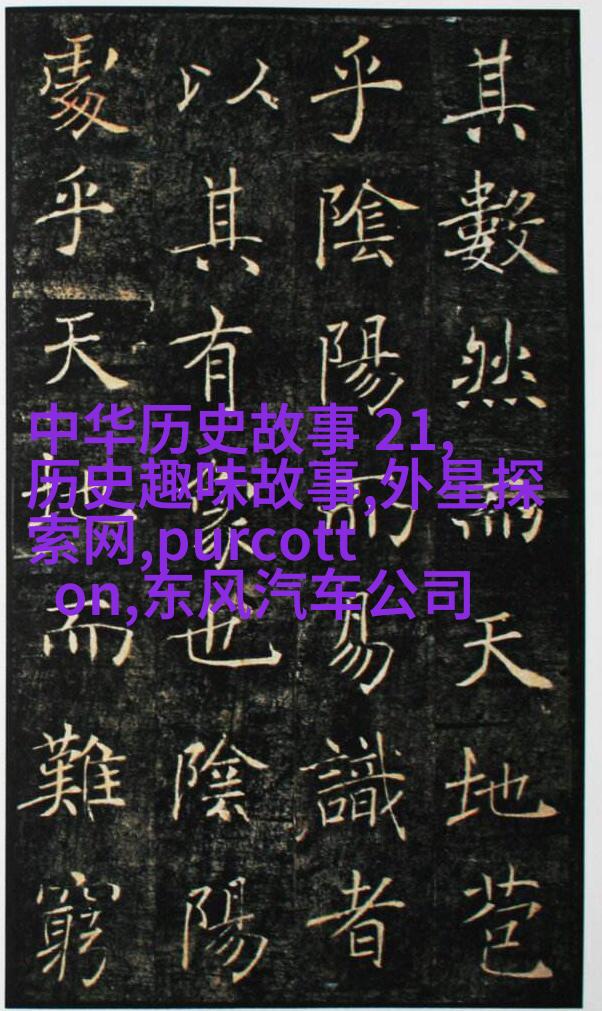 其數然而天地苞
乎陰陽而易識者
以其有像也陰陽
處乎天地而難窮
中华历史故事 21,
历史趣味故事,外星探
索网,purcott
on,东风汽车公司